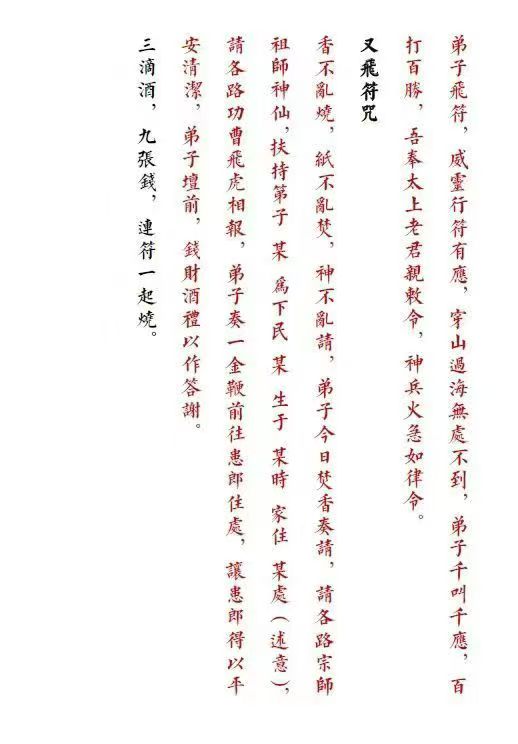 弟子飛符，威靈行符有應，穿山過海無處不到，弟子千叫千應，百
打百勝，吾奉太上老君親敕令，神兵火急如律令。
又飛符咒
香不亂燒，紙不亂焚，神不亂請，弟子今日焚香奏請，請各路宗師
祖師神仙，扶持第子 某 爲下民 某 生于 某時 家住 某處（述意），
請各路功曹飛虎相報，弟子奏一金鞭前往患郎住處，讓患郎得以平
安清潔，弟子壇前，錢財酒禮以作答謝。
三滴酒，九張錢，連符一起燒。